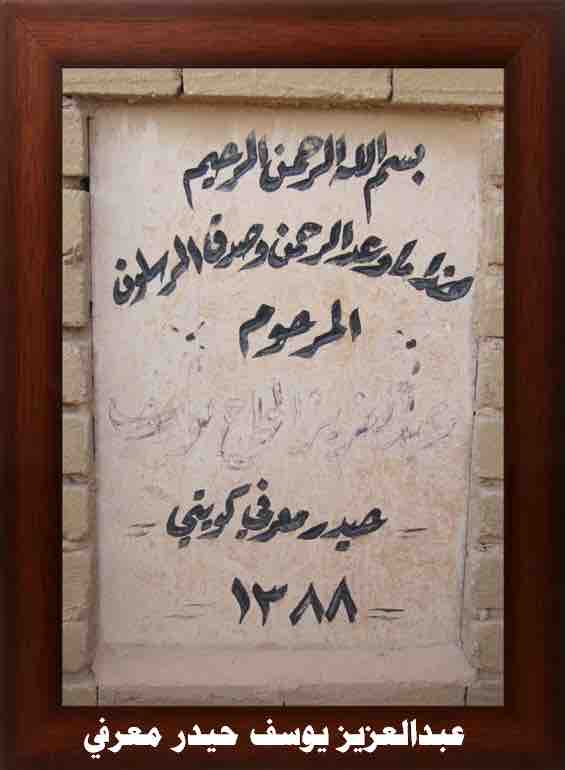 بسم الله الرحمن الرحيم
هذا ما وعد الرحمن وصدق المرسلون
المرحوم
عبد العزيز الحاج يوسف
حيدر معرفي كويتي
١٣٨٨
عبدالعزيز يوسف حيدر معرفي